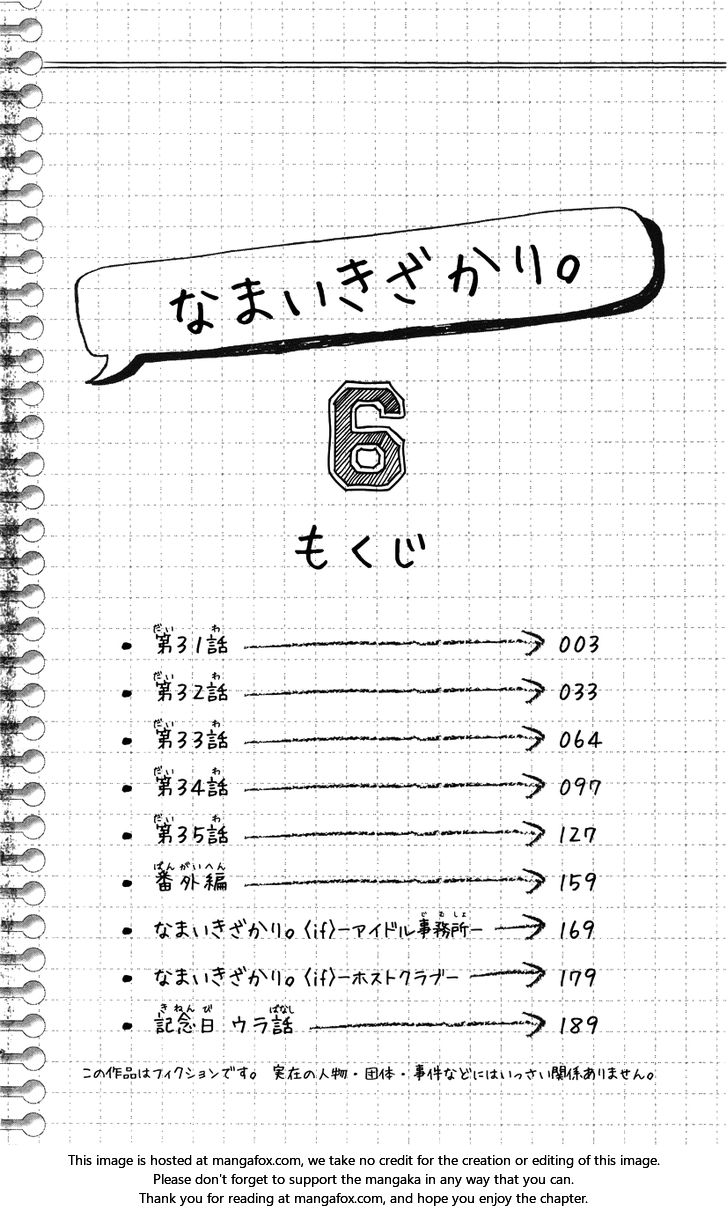 なまいきざかり。
6
もくじ
第31話 003
第32話 033
第33話 064
第34話 097
第35話 127
番外編 159
なまいきざかり。〈if〉ーアイドル事務所ー 169
なまいきざかり。〈if〉ーホストクラブー 179
記念日 ウラ話 189
この作品はフィクションです。 実在の人物・団体・事件などにはいっさい関係ありません。
This image is hosted at mangafox.com, we take no credit for the creation or editing of this image.
Please don't forget to support the mangaka in any way that you can.
Thank you for reading at mangafox.com, and hope you enjoy the chapter.